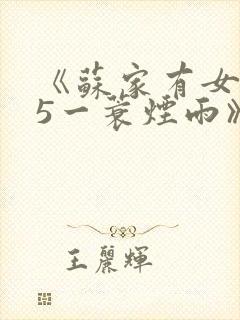 《蘇家有女
5一蓑煙雨》
王麗輝